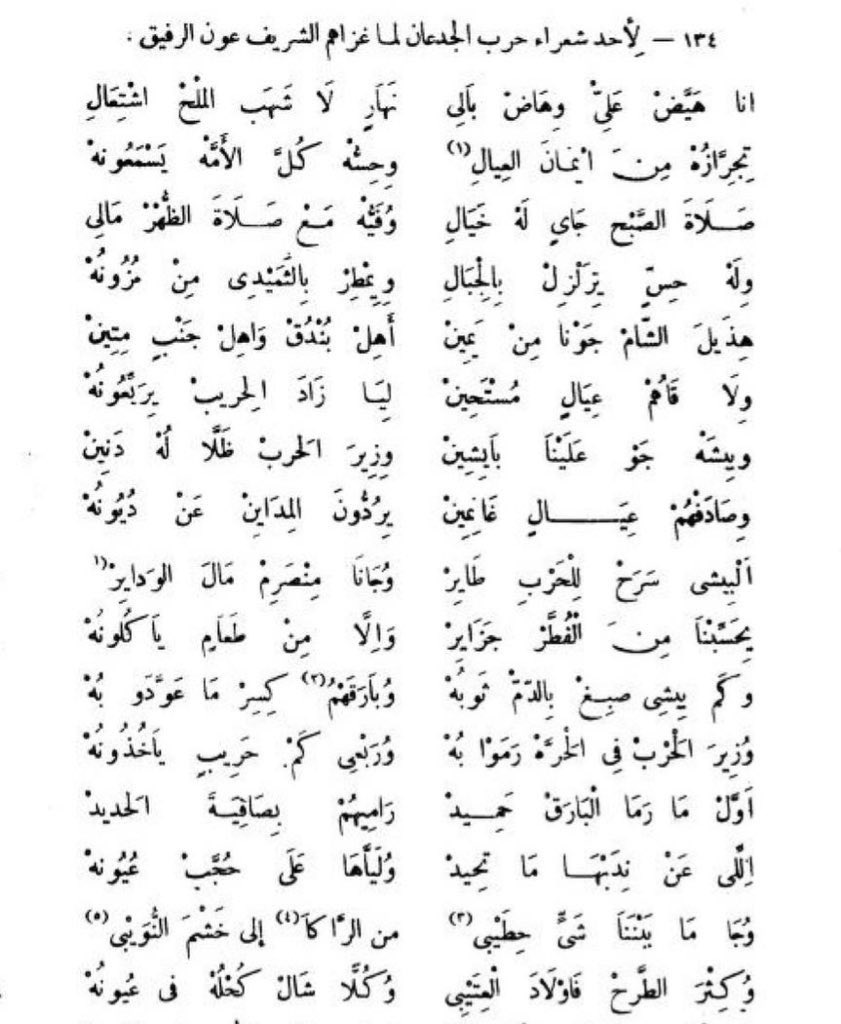 ١٣٤ — لأحد شعراء حرب الجدعان لما غزاهم الشريف عون الرفيق :
انا هَيَّضْ عَلَيّْ وِهَاضْ بَالِي نَهَارٍ لَا شَهَب المِلْحْ اشْتِعَالِ
تِجِرَّازُهْ مِنَ ايْمَانَ العِيالِ(١) وِحِسُّهْ كُلَّ الأُمَّهْ يَسْمَعُونهْ
صَلَاةَ الصَّبْح جَايٍ لَهْ خَيَالِ وُفَيُّهْ مَعْ صَلَاةَ الظُّهْرْ مَالِي
وِلَهْ حِسٍّ يِزَلْزِلْ بِالْجِبَالِ وِيِمْطِرْ بِالثَّمَيْدِى مِنْ مُزُونُهْ
هِذَيلَ الشَّامْ جَوْنا مِنْ يَمِينْ أَهِلْ بُنْدُقْ وَاهِلْ جَنْبٍ مِتِينْ
وِلَا قَاهُمْ عِيَالٍ مُسْتَحِينْ لِيَا زَادَ الِحريبْ يِرَبِّعُونُهْ
وبِيشَهْ جَوْ عَلَيْنَا بَايِشِينْ وِزِيرَ الَحربْ ظَلَّا لُهْ دَنِينْ
وِصَادَفْهُمْ عِيَالٍ غَانِمِينْ يِرُدُّونَ الِمدَاينْ عَنْ دُيُونُهْ
اَلْبِيشى سَرَحْ لِلْحَرْبِ طَايِرْ وُجَانَا مِنْصَرِمْ مَالَ الوَدايِرْ(١)
يِحَسِّبْنَا مِنَ الْفُطَّرْ جَزَايِرْ وَاِلَّا مِنْ طَعَامٍ يَا كُلُونُهْ
وكَم بِيشِى صبِغْ بِالدّمّْ ثَوبُهْ وُبَارَقَهُمْ(٢) كِسِرْ مَا عَوَّدَو بُهْ
وُزِيرَ الْحَرْبْ فِى الْحرَّهْ رَمَوْا بُهْ وُرَبْعِى كَمْ حَرِيبٍ يَاخُذُونُهْ
اَوَّلْ مَا رَمَا الْبَارَقْ حَمِيدْ رَامِيهُمْ بِصَافِيَةَ الَحديدْ
اِللَّى عَنْ نِدَبْهَا مَا تحِيدْ وُلَيَّاهَا عَلَى حُجَّبْ عُيُونهْ
وُجَا مَا بَيْنَنَا شَيٍّ حِطَيْبِى(٣) من الرَّاكَا(٤) إلى خَشْمَ النُّوَيْبِى(٥)
وُكِثْرَ الطَّرحْ فَاوْلَادَ الْعِتَيْبِى وُكُلًّا شَالْ كُحْلُهْ فى عُيونُهْ